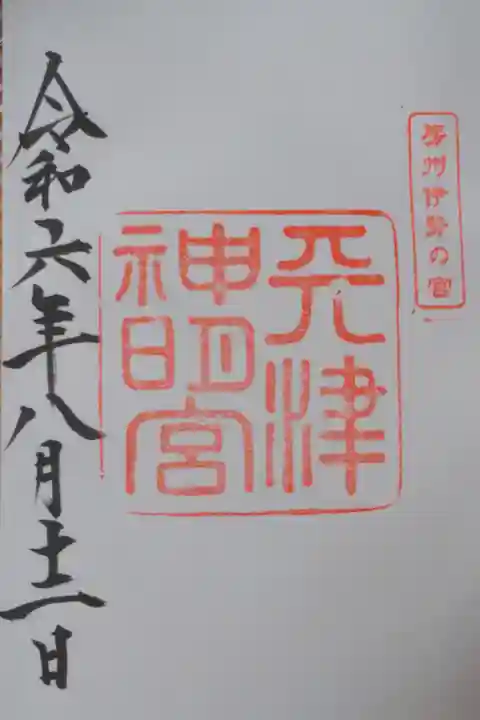 房州伊勢の宮
天津
神明宮
令和六年八月十二日